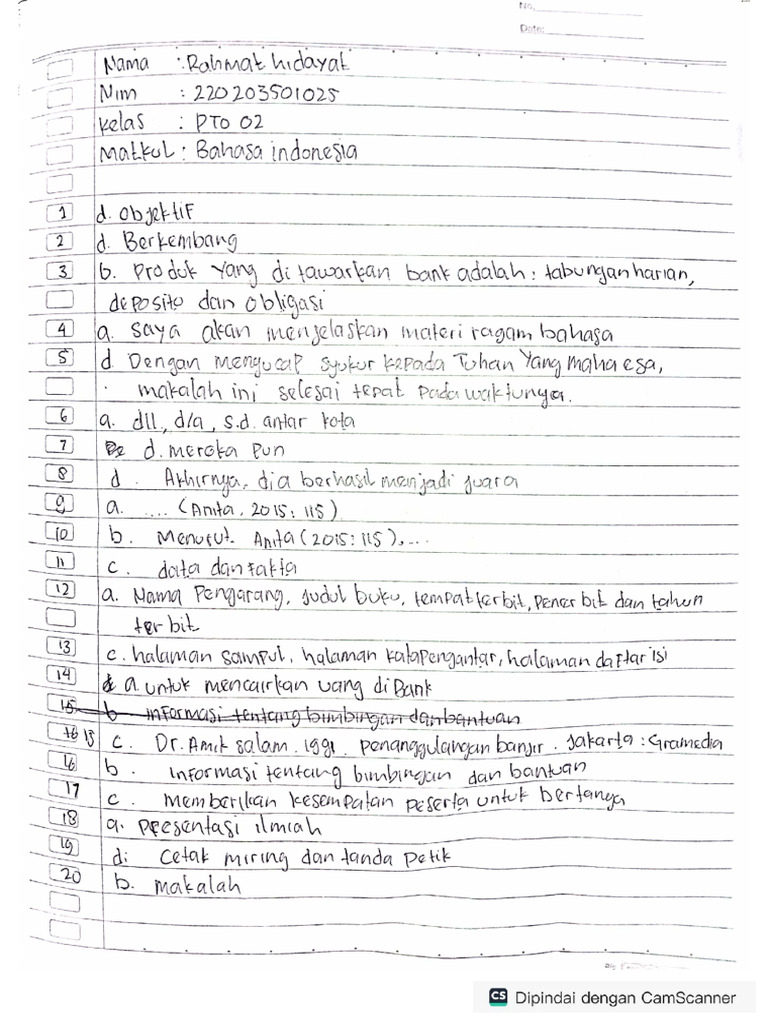 No.
Date:
Nama : Rahmat hidayat
Nim : 220203501025
Kelas : PTO 02
Matkul : Bahasa indonesia
1 d. Objektif
2 d. Berkembang
3 b. Produk yang di tawarkan bank adalah : tabungan harian,
deposito dan obligasi
4 a. saya akan menjelaskan materi ragam bahasa
5 d Dengan mengucap syukur kepada Tuhan Yang maha esa,
makalah ini selesai tepat pada waktunya.
6 a. dll., d/a, s.d. antar kota
7 d. mereka pun
8 d. Akhirnya, dia berhasil menjadi juara
9 a. .... (Anita, 2015: 115)
10 b. Menurut Anita (2015: 115), ...
11 c. data dan fakta
12 a. Nama Pengarang, judul buku, tempat terbit, penerbit dan tahun
terbit
13 c. halaman sampul, halaman kata pengantar, halaman daftar isi
14 a. untuk mencairkan uang di Bank
15 b informasi tentang bimbingan dan bantuan
15 c. Dr. Amik salam. 1991. penanggulangan banjir. Jakarta : Gramedia
16 b. informasi tentang bimbingan dan bantuan
17 c. Memberikan kesempatan peserta untuk bertanya
18 a. presentasi ilmiah
19 d. Cetak miring dan tanda petik
20 b. makalah
CS Dipindai dengan CamScanner